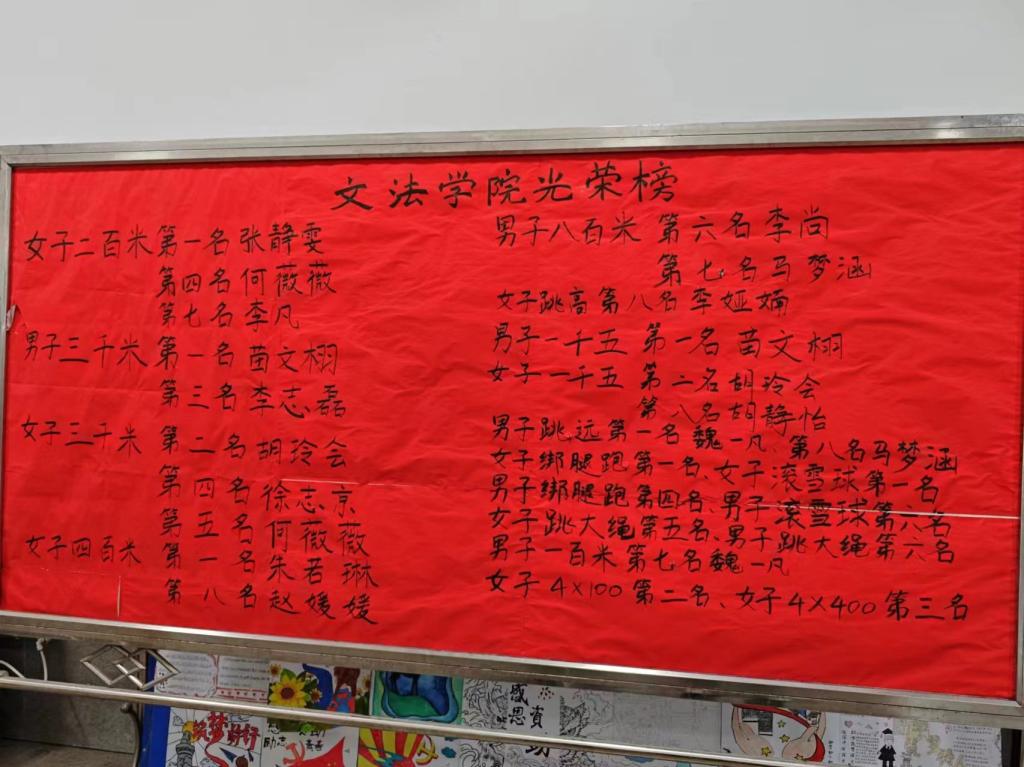 文法学院光荣榜
女子二百米第一名张静雯
第四名何薇薇
第七名李凡
男子三千米第一名苗文栩
第三名李志磊
女子三千米第二名胡玲会
第四名徐志京
第五名何薇薇
女子四百米第一名朱若琳
第八名赵媛媛
男子八百米第六名李尚
第七名马梦涵
女子跳高第八名李娅婻
男子一千五第一名苗文栩
女子一千五第二名胡玲会
第八名胡静怡
男子跳远第一名魏一凡、第八名马梦涵
女子绑腿跑第一名、女子滚雪球第一名
男子绑腿跑第四名、男子滚雪球第六名
女子跳大绳第五名、男子跳大绳第六名
男子一百米第七名魏一凡
女子4×100第二名、女子4×400第三名
筑梦好行
励志
感恩資助